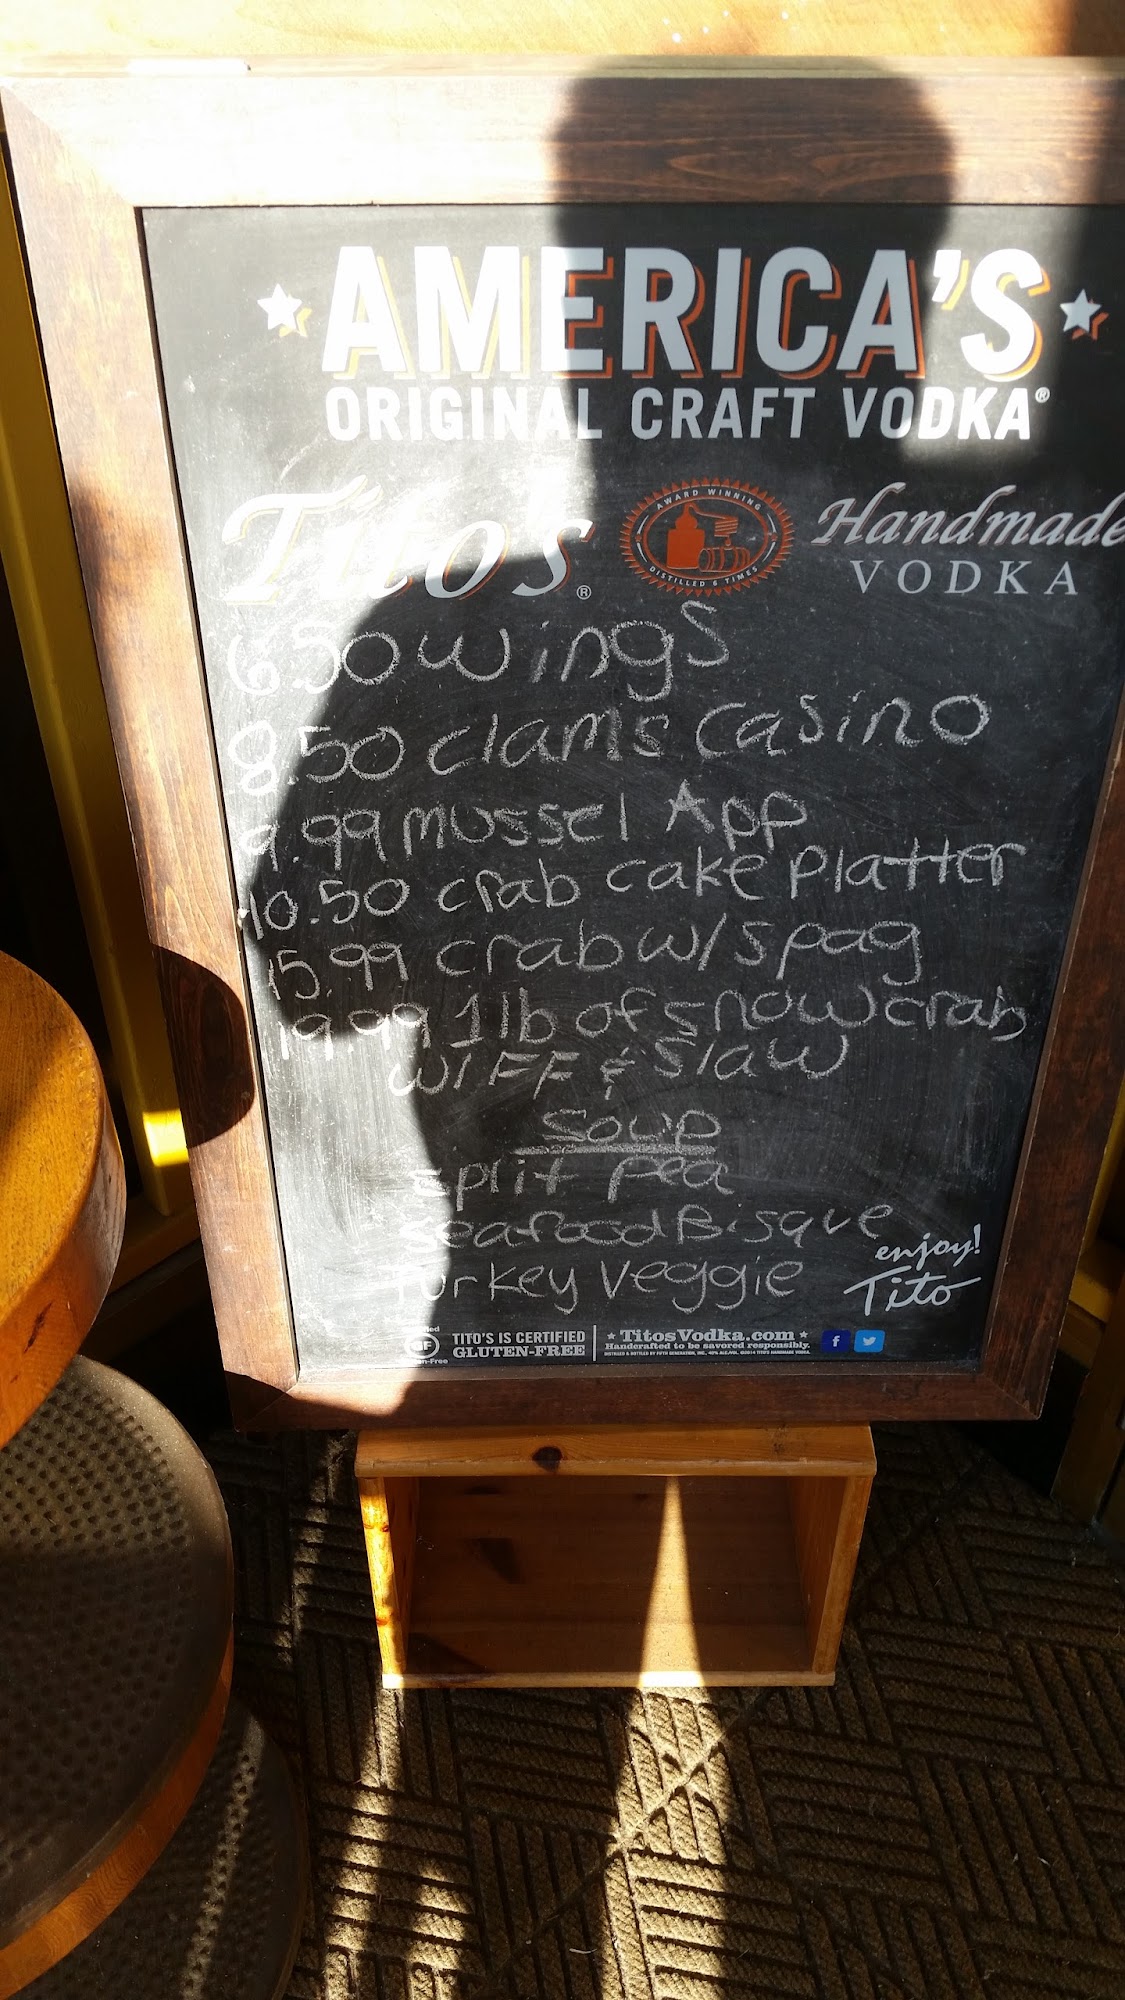 AMERICA'S
ORIGINAL CRAFT VODKA®
Tito's®
AWARD WINNING
DISTILLED 6 TIMES
Handmade
VODKA
6.50 wings
8.50 clams casino
9.99 mussel App
10.50 crab cake platter
15.99 crab w/spag
19.99 1 lb of snow crab
w/FF & Slaw
Soup
split pea
seafood Bisque
Turkey Veggie
enjoy!
Tito
GF
TITO'S IS CERTIFIED
GLUTEN-FREE
TitosVodka.com
Handcrafted to be savored responsibly.